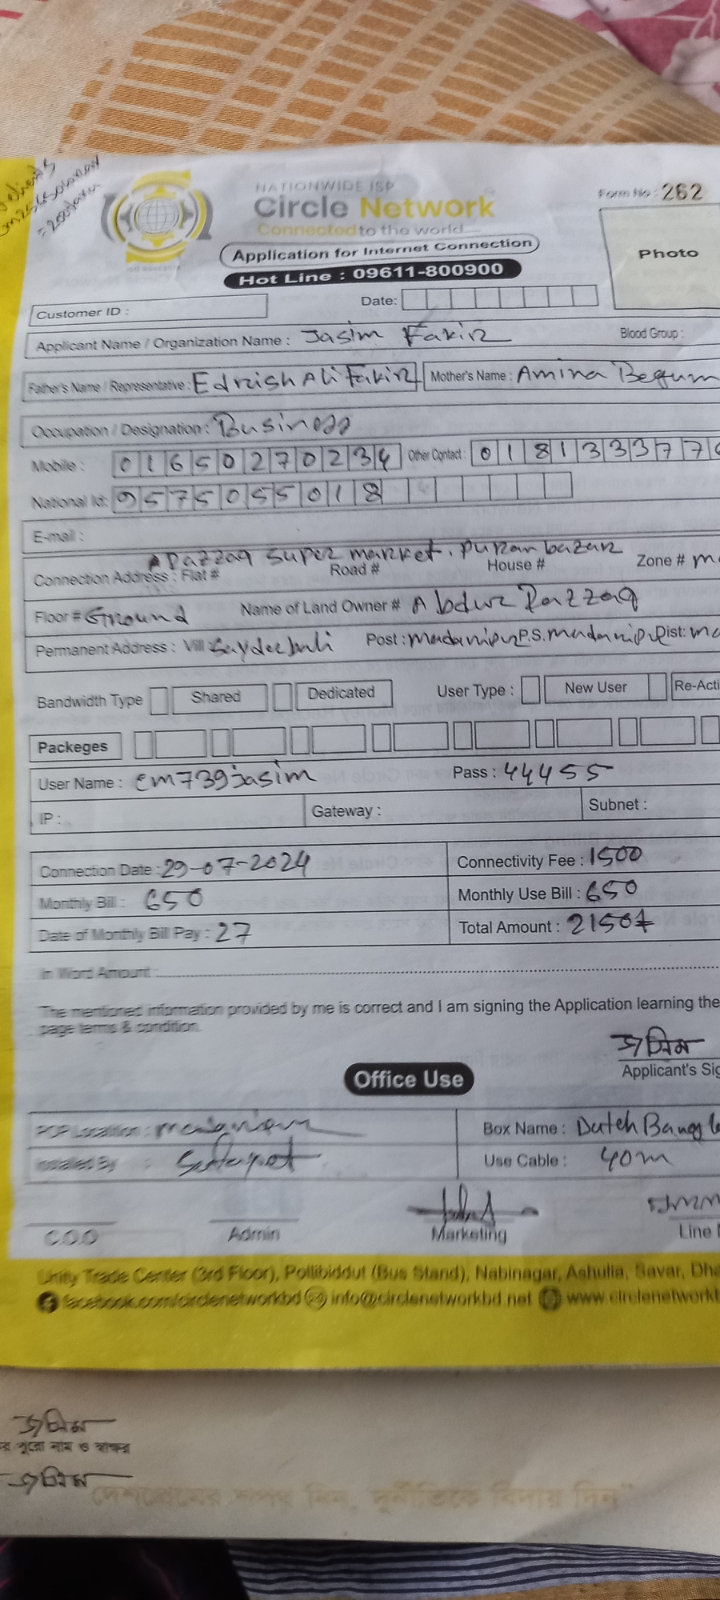 NATIONWIDE ISP
Circle Network
Connected to the world
Form No : 262
Application for Internet Connection
Hot Line : 09611-800900
Photo
Customer ID :
Date:
Applicant Name / Organization Name : Jasim Fakir
Blood Group :
Father's Name / Representative : Edrish Ali Fakir Mother's Name : Amina Begum
Occupation / Designation : Business
Mobile : 01650270234 Other Contact : 0181333776
National Id: 9575055018
E-mail :
Razzaq super market, puran bazar
Connection Address : Flat # Road # House # Zone #
Floor # Ground Name of Land Owner # Abdur Razzaq
Permanent Address : Vill Post : madaripur P.S. madaripur Dist:
Bandwidth Type Shared Dedicated User Type : New User Re-Acti
Packeges
User Name : cm739jasim Pass : 44455
IP : Gateway : Subnet :
Connection Date : 29-07-2024 Connectivity Fee : 1500
Monthly Bill : 650 Monthly Use Bill : 650
Date of Monthly Bill Pay : 27 Total Amount : 2150
In Word Amount :
The mentioned information provided by me is correct and I am signing the Application learning the
page terms & condition.
জসিম
Applicant's Sig
Office Use
POP Location : Box Name : Dutch Bangl
Installed By : Use Cable : 40m
C.O.O Admin Marketing Line
Unity Trade Center (3rd Floor), Pollibiddut (Bus Stand), Nabinagar, Ashulia, Savar, Dha
facebook.com/circlenetworkbd info@circlenetworkbd.net www.circlenetworkb
জসিম
র পুরো নাম ও স্বাক্ষর
জসিম
দেশপ্রেমের শপথ নিন, দুর্নীতিকে বিদায় দিন"